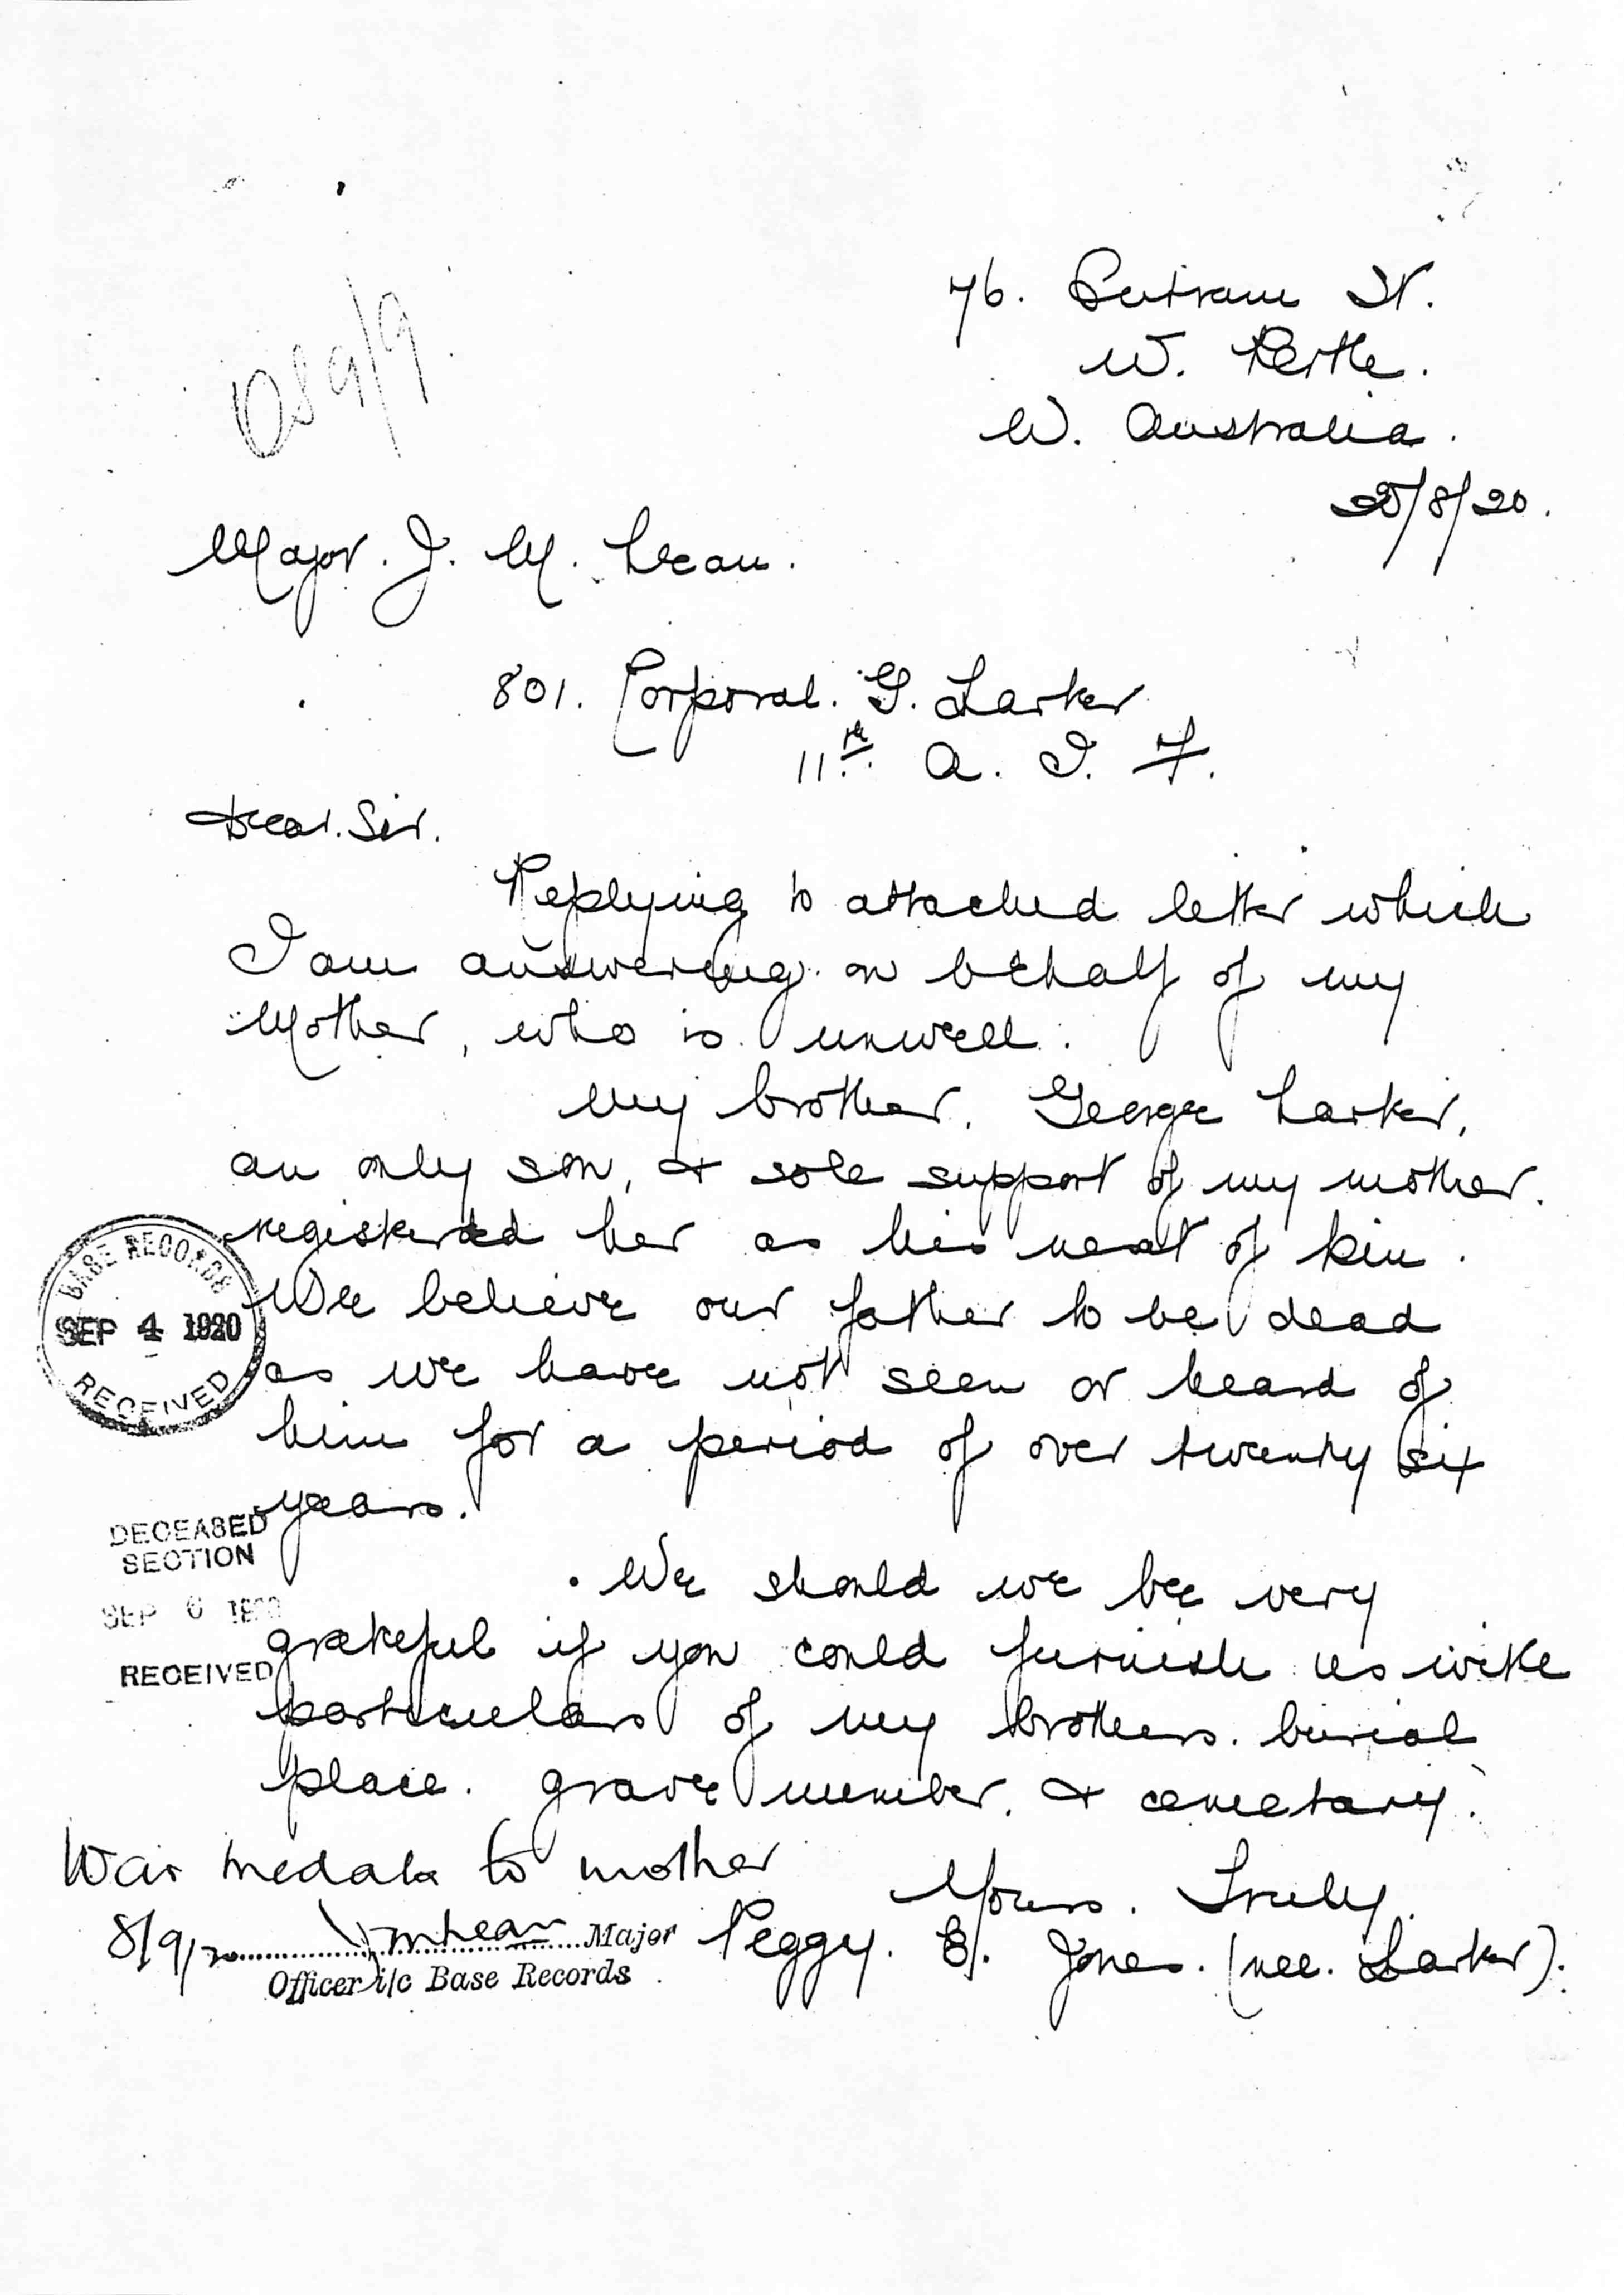 76. Outram St.
W. Perth.
W. Australia.
25/8/20.
Major. J. M. Lean.
801. Corporal. G. Larker
11th. A. I. F.
Dear. Sir.
Replying to attached letter which
I am answering on behalf of my
Mother, who is unwell.
My brother. George Larker,
an only son, & sole support of my mother.
registered her as his next of kin.
BASE RECORDS
SEP 4 1920
RECEIVED
We believe our father to be dead
as we have not seen or heard of
him for a period of over twenty six
years.
DECEASED
SECTION
SEP 6
RECEIVED
We should we be very
grateful if you could furnish us with
particulars of my brothers. burial
place. grave number. & cemetary.
War medals to mother
Yours. Truly.
8/9/20 JMLean Major
Officer i/c Base Records
Peggy. E. Jones. (nee. Larker).